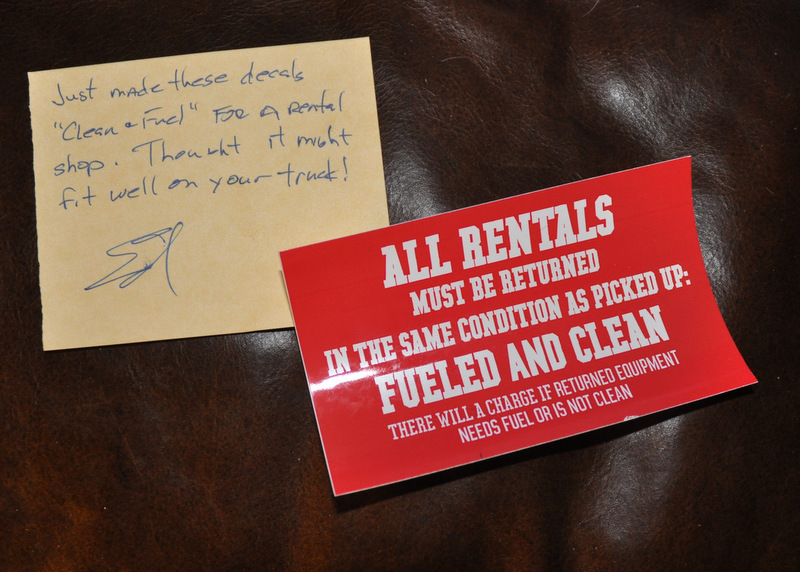 Just made these decals
"Clean & Fuel" FOR A Rental
shop. Thought it might
fit well on your truck!
ALL RENTALS
MUST BE RETURNED
IN THE SAME CONDITION AS PICKED UP:
FUELED AND CLEAN
THERE WILL A CHARGE IF RETURNED EQUIPMENT
NEEDS FUEL OR IS NOT CLEAN